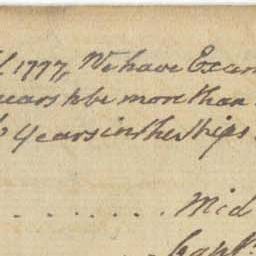 1777, We have Exam
pears to be more than
6 Years in the Ships
. . . . . . . . . Mid
Capt.